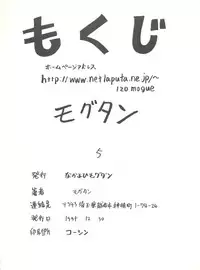 もくじ
ホームページアドレス
http://www.netlaputa.ne.jp/~
izomogue
モグタン
5
発行 なかよひモグダン
著者 モグタン
連絡先
発行日 1998 12 30
印刷所 コーシン